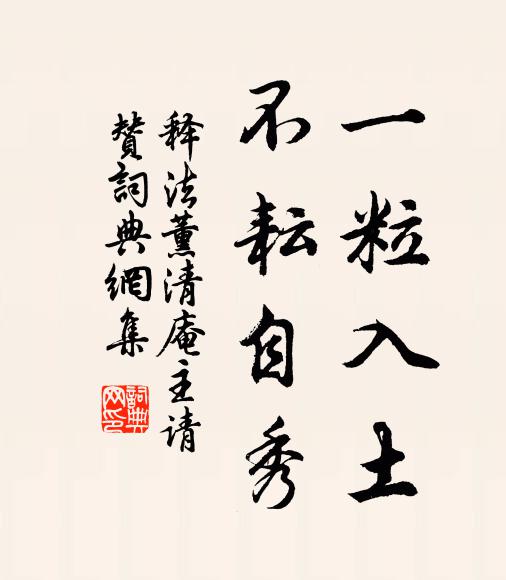 一粒入土
不耘自秀
释法薰清庵主请
赞詞典網集
詞典
网印